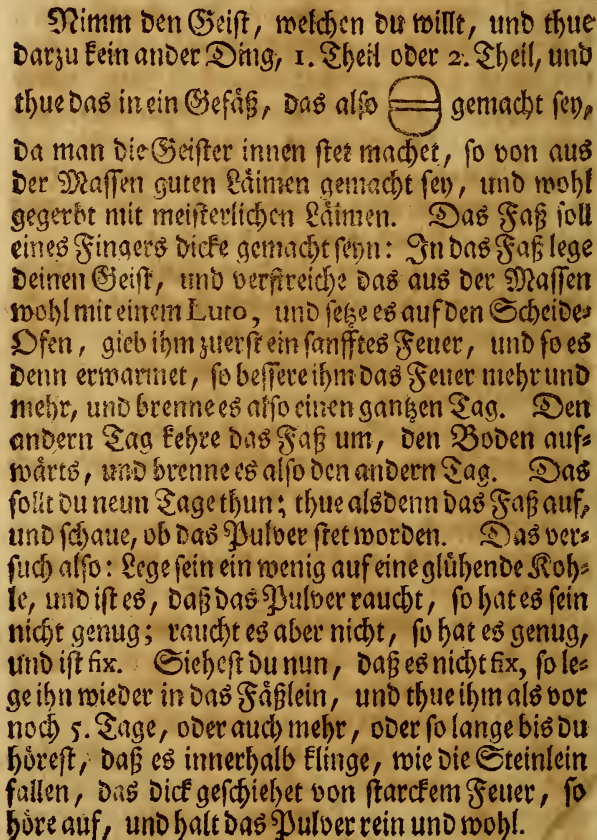 Nimm den Geist, welchen du willt, und thue
darzu kein ander Ding, 1. Theil oder 2. Theil, und
thue das in ein Gefäß, das also gemacht sey,
da man die Geister innen stet machet, so von aus
der Massen guten Läimen gemacht sey, und wohl
gegerbt mit meisterlichen Läimen. Das Faß soll
eines Fingers dicke gemacht seyn: In das Faß lege
deinen Geist, und verstreiche das aus der Massen
wohl mit einem Luto, und setze es auf den Scheide-
Ofen, gieb ihm zuerst ein sanfftes Feuer, und so es
denn erwarmet, so bessere ihm das Feuer mehr und
mehr, und brenne es also einen gantzen Tag. Den
andern Tag kehre das Faß um, den Boden auf-
wärts, und brenne es also den andern Tag. Das
sollt du neun Tage thun; thue alsdenn das Faß auf,
und schaue, ob das Pulver stet worden. Das ver-
such also: Lege sein ein wenig auf eine glühende Koh-
le, und ist es, daß das Pulver raucht, so hat es sein
nicht genug; raucht es aber nicht, so hat es genug,
und ist fix. Siehest du nun, daß es nicht fix, so le-
ge ihn wieder in das Fäßlein, und thue ihm als vor
noch 5. Tage, oder auch mehr, oder so lange bis du
hörest, daß es innerhalb klinge, wie die Steinlein
fallen, das dick geschiehet von starckem Feuer, so
höre auf, und halt das Pulver rein und wohl.